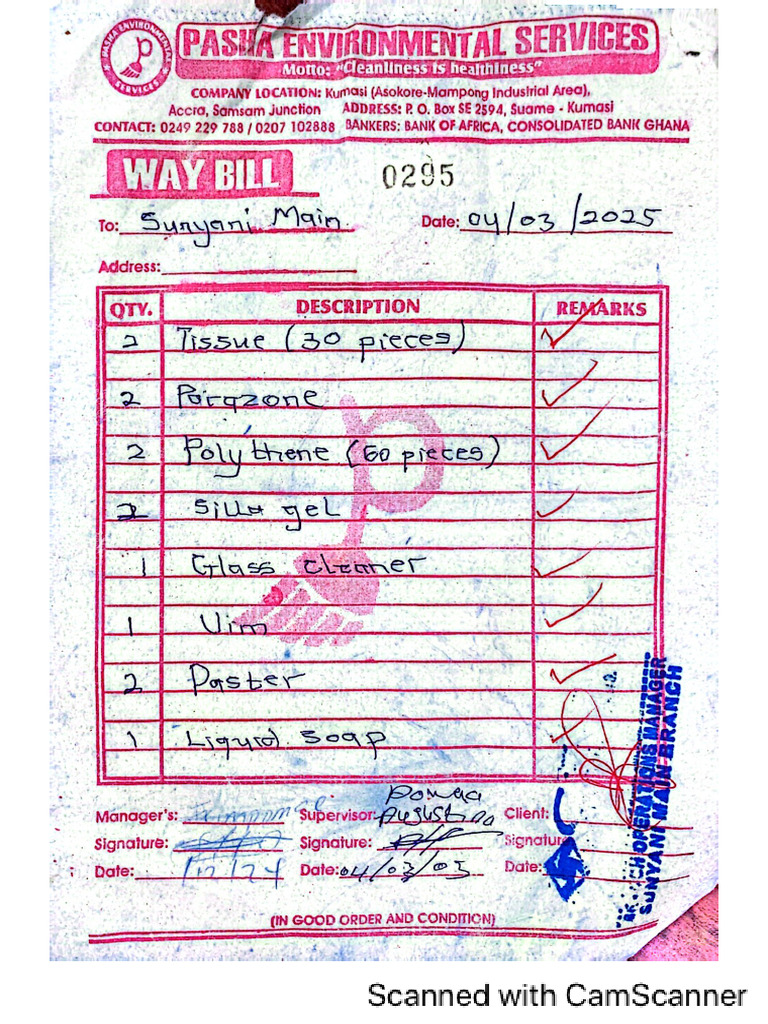 PASHA ENVIRONMENTAL SERVICES
PASHA ENVIRONMENTAL SERVICES
Motto: "Cleanliness is healthiness"
COMPANY LOCATION: Kumasi (Asokore-Mampong Industrial Area),
Accra, Samsam Junction ADDRESS: P. O. Box SE 2594, Suame - Kumasi
CONTACT: 0249 229 788 / 0207 102888 BANKERS: BANK OF AFRICA, CONSOLIDATED BANK GHANA
WAY BILL 0295
To: Sunyani Main Date: 04/03/2025
Address:
QTY. DESCRIPTION REMARKS
2 Tissue (30 pieces)
2 Parazone
2 Polythene (60 pieces)
2 Silla gel
1 Glass cleaner
1 Vim
2 Paster
1 Liquid soap
Manager's: Supervisor: Augustina Client:
Signature: Signature: Signature
Date: /12/24 Date: 04/03/03 Date:
(IN GOOD ORDER AND CONDITION)
OPERATIONS MANAGER
SUNYANI MAIN BRANCH
Scanned with CamScanner